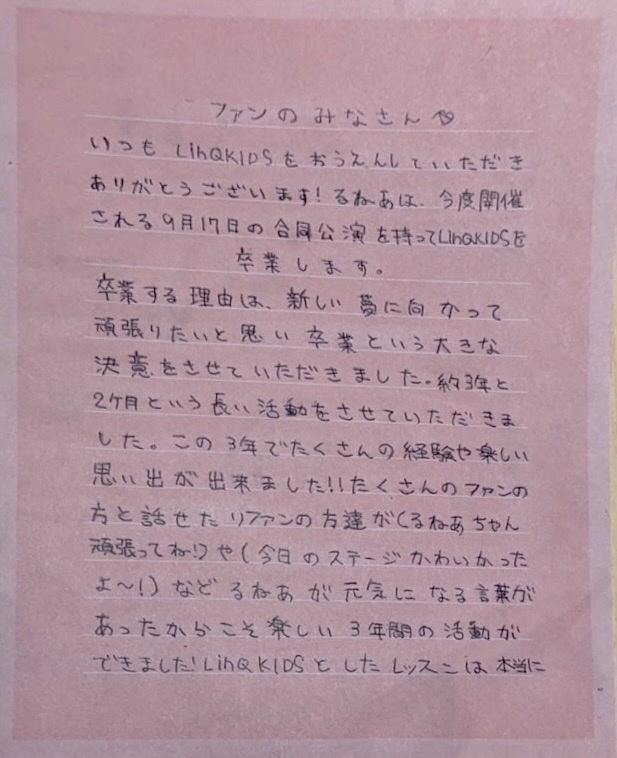 ファンのみなさん♡
いつも LinQKIDSをおうえんしていただき
ありがとうございます!るねあは、今度開催
される9月17日の合同公演を持ってLinQKIDSを
卒業します。
卒業する理由は、新しい夢に向かって
頑張りたいと思い卒業という大きな
決意をさせていただきました。約3年と
2ケ月という長い活動をさせていただきま
した。この3年でたくさんの経験や楽しい
思い出が出来ました!!たくさんのファンの
方と話せたりファンの方達が(るねあちゃん
頑張ってね!)や(今日のステージかわいかった
よ〜!)などるねあが元気になる言葉が
あったからこそ楽しい3年間の活動が
できました!LinQKIDSとしたレッスンは本当に